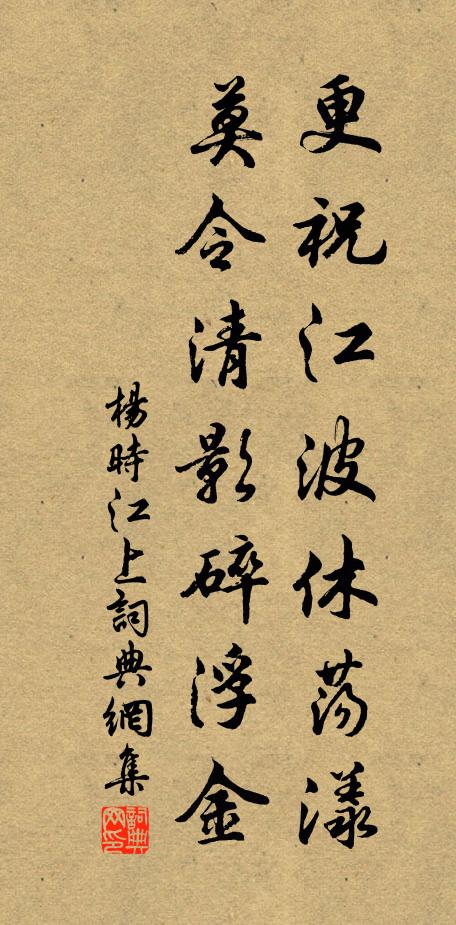 更祝江波休荡漾
莫令清影碎浮金
楊時江上詞典網集
詞典網印